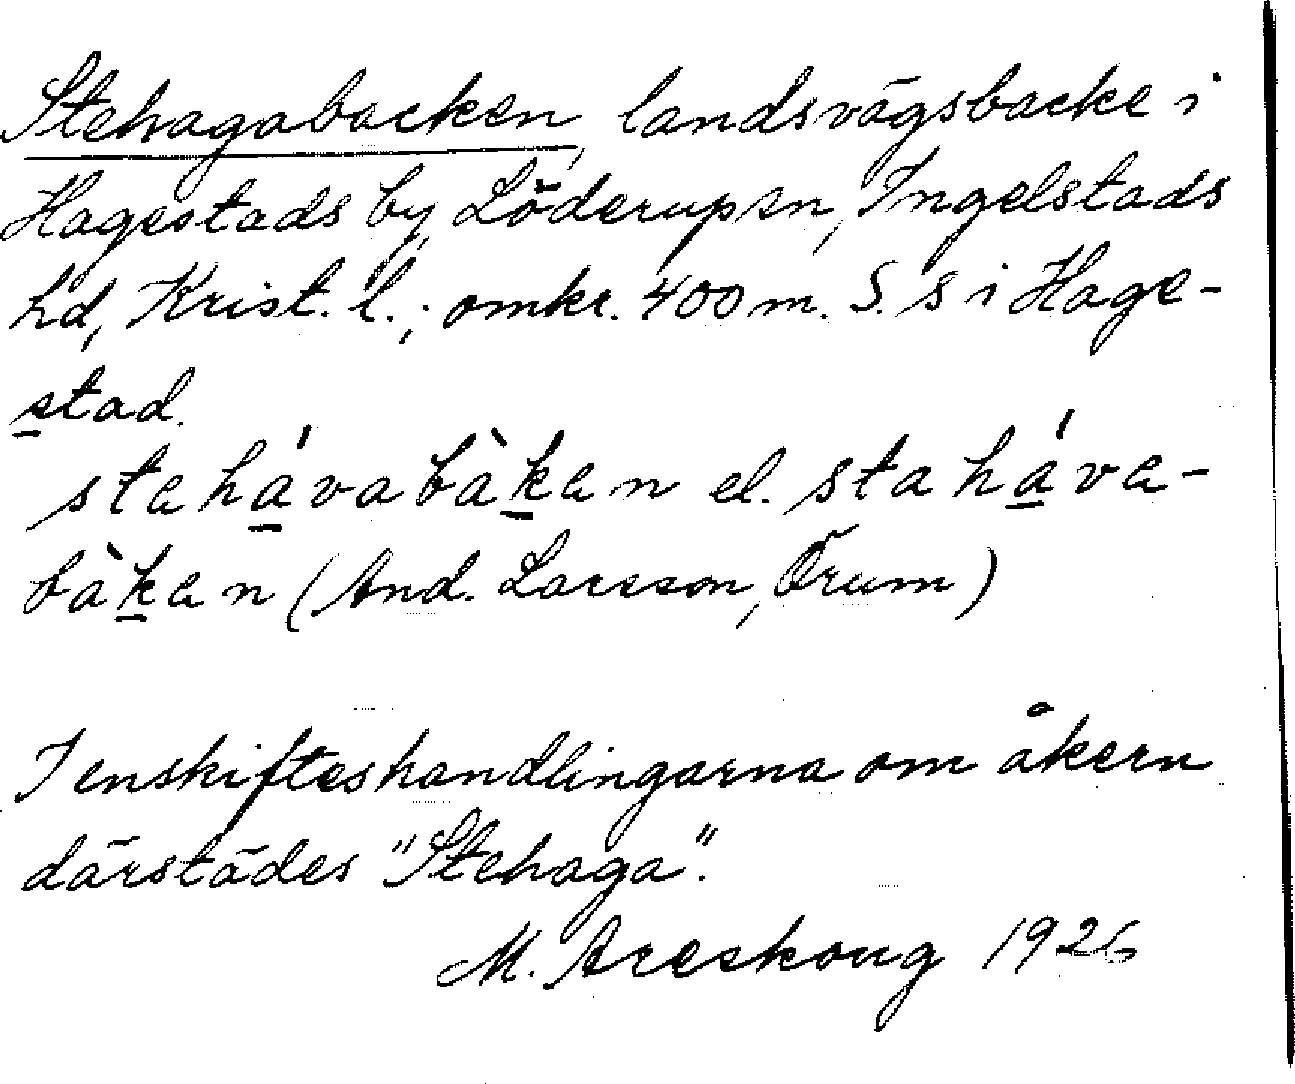 Stehagabacken, landsvägsbacke i
Hagestads by, Löderups sn, Ingelstads
hd, Krist. l.; omkr. 400 m. S. s i Hage-
stad.
stehávabàken el. staháva-
bàken (And. Larsson, Örum)
I enskifteshandlingarna om åkern
därstädes "Stehaga".
M. Areskoug 1926